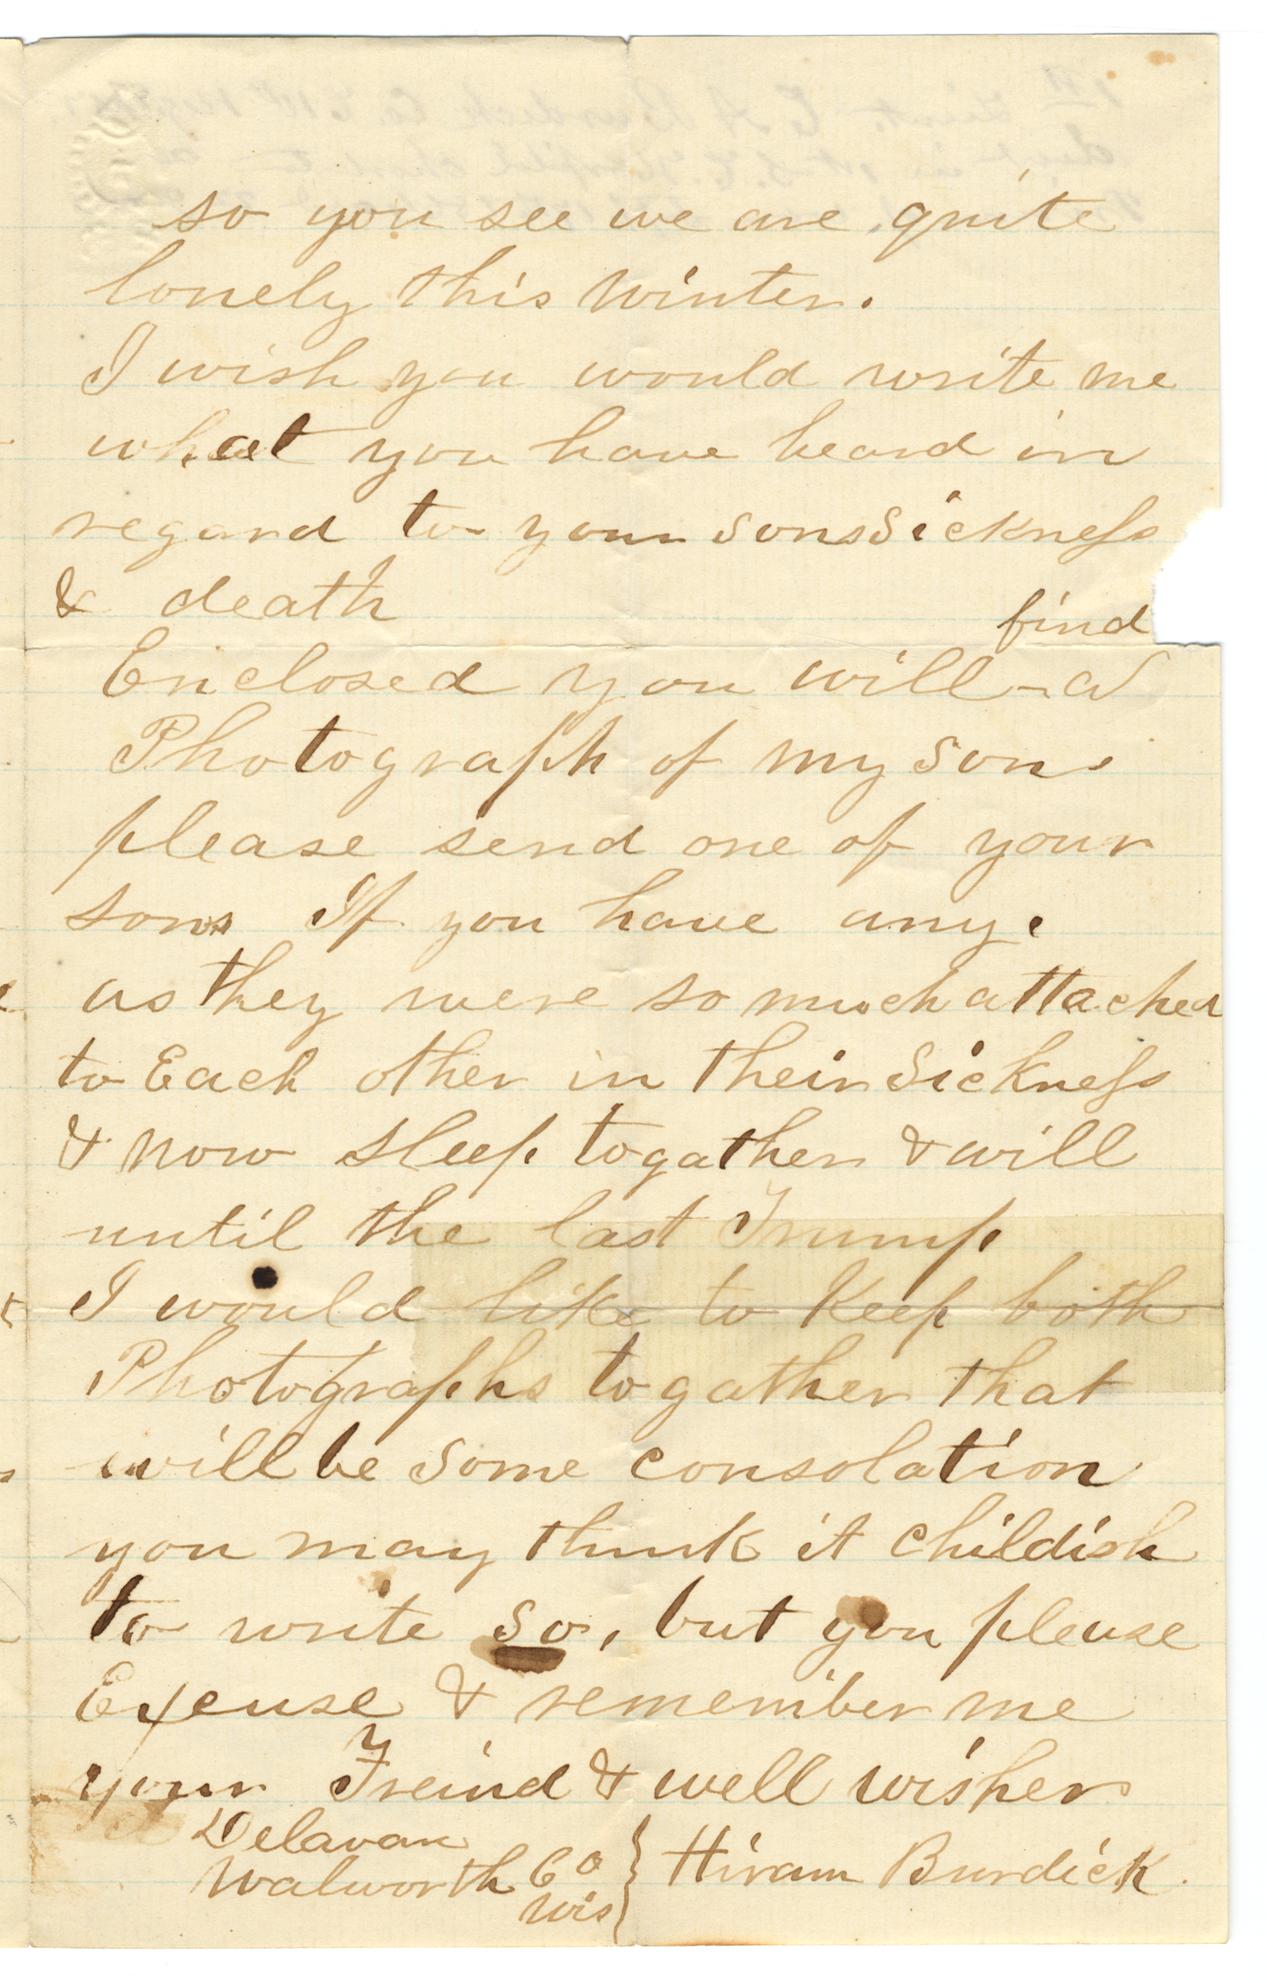 so you see we are quite
lonely this Winter.
I wish you would write me
what you have heard in
regard to your sons Sickness
& death
find
Enclosed you will a
Photograph of my son.
please send one of your
sons If you have any.
as they were so much attached
to Each other in their Sickness
& now sleep togather & will
until the last Trump
I would like to Keep both
Photographs togather that
will be some consolation
you may think it childish
to write so, but you please
Excuse & remember me
your Freind & well wisher
Delavan
Walworth Co
Wis
Hiram Burdick.